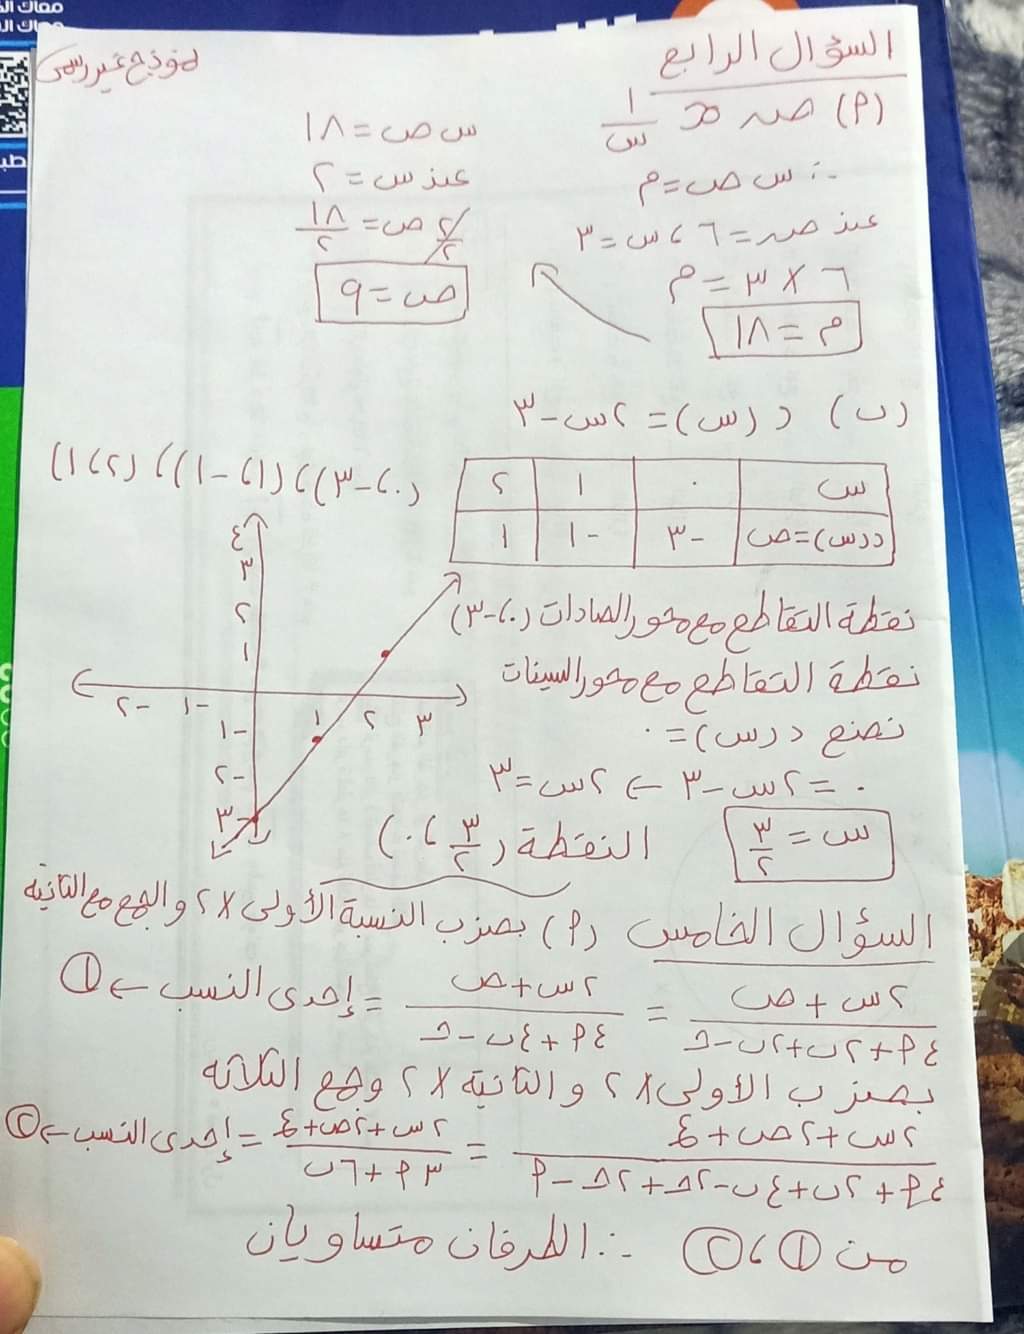 نموذج غير رسمى
السؤال الرابع
(P) ص ∝ ١/س
∴ س ص = م
عند ص = ٦ ، س = ٣
٦ × ٣ = م
م = ١٨
س ص = ١٨
عند س = ٢
٢/٢ ص = ١٨/٢
ص = ٩
(ب) د(س) = ٢س - ٣
س ٠ ١ ٢
د(س) = ص -٣ -١ ١
(٠ ، -٣) ، (١ ، -١) ، (٢ ، ١)
٤
٣
٢
١
-٢ -١ ١ ٢ ٣
-١
-٢
-٣
نقطة التقاطع مع محور الصادات (٠ ، -٣)
نقطة التقاطع مع محور السينات
نضع د(س) = ٠
٠ = ٢س - ٣ ← ٢س = ٣
س = ٣/٢ النقطة (٣/٢ ، ٠)
السؤال الخامس (P) بضرب النسبة الأولى × ٢ والجمع مع الثانية
(٢س + ص)/(٤P + ٢ب + ٢ب - ج) = (٢س + ص)/(٤P + ٤ب - ج) = إحدى النسب ← ①
بضرب الأولى × ٢ والثانية × ٢ وجمع الثلاثه
(٢س + ٢ص + ع)/(٤P + ٢ب + ٤ب - ٢ج + ٢ج - P) = (٢س + ٢ص + ع)/(٣P + ٦ب) = إحدى النسب ← ②
من ① ، ② ∴ الطرفان متساويان